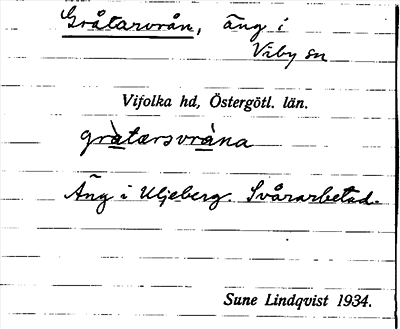 Gråtarvrån, äng i
Viby sn
Vifolka hd, Östergötl. län.
gràtarsvràna
Äng i Uljeberg. Svårarbetad.
Sune Lindqvist 1934.